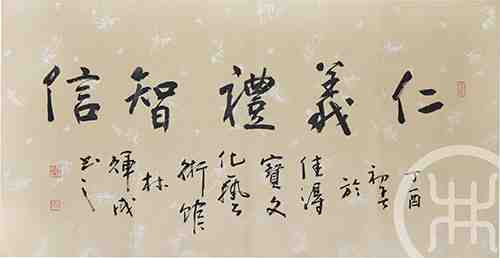 仁義禮智信
丁酉
初春
於
佳得
寶文
化藝
術館
林
輝成
書之